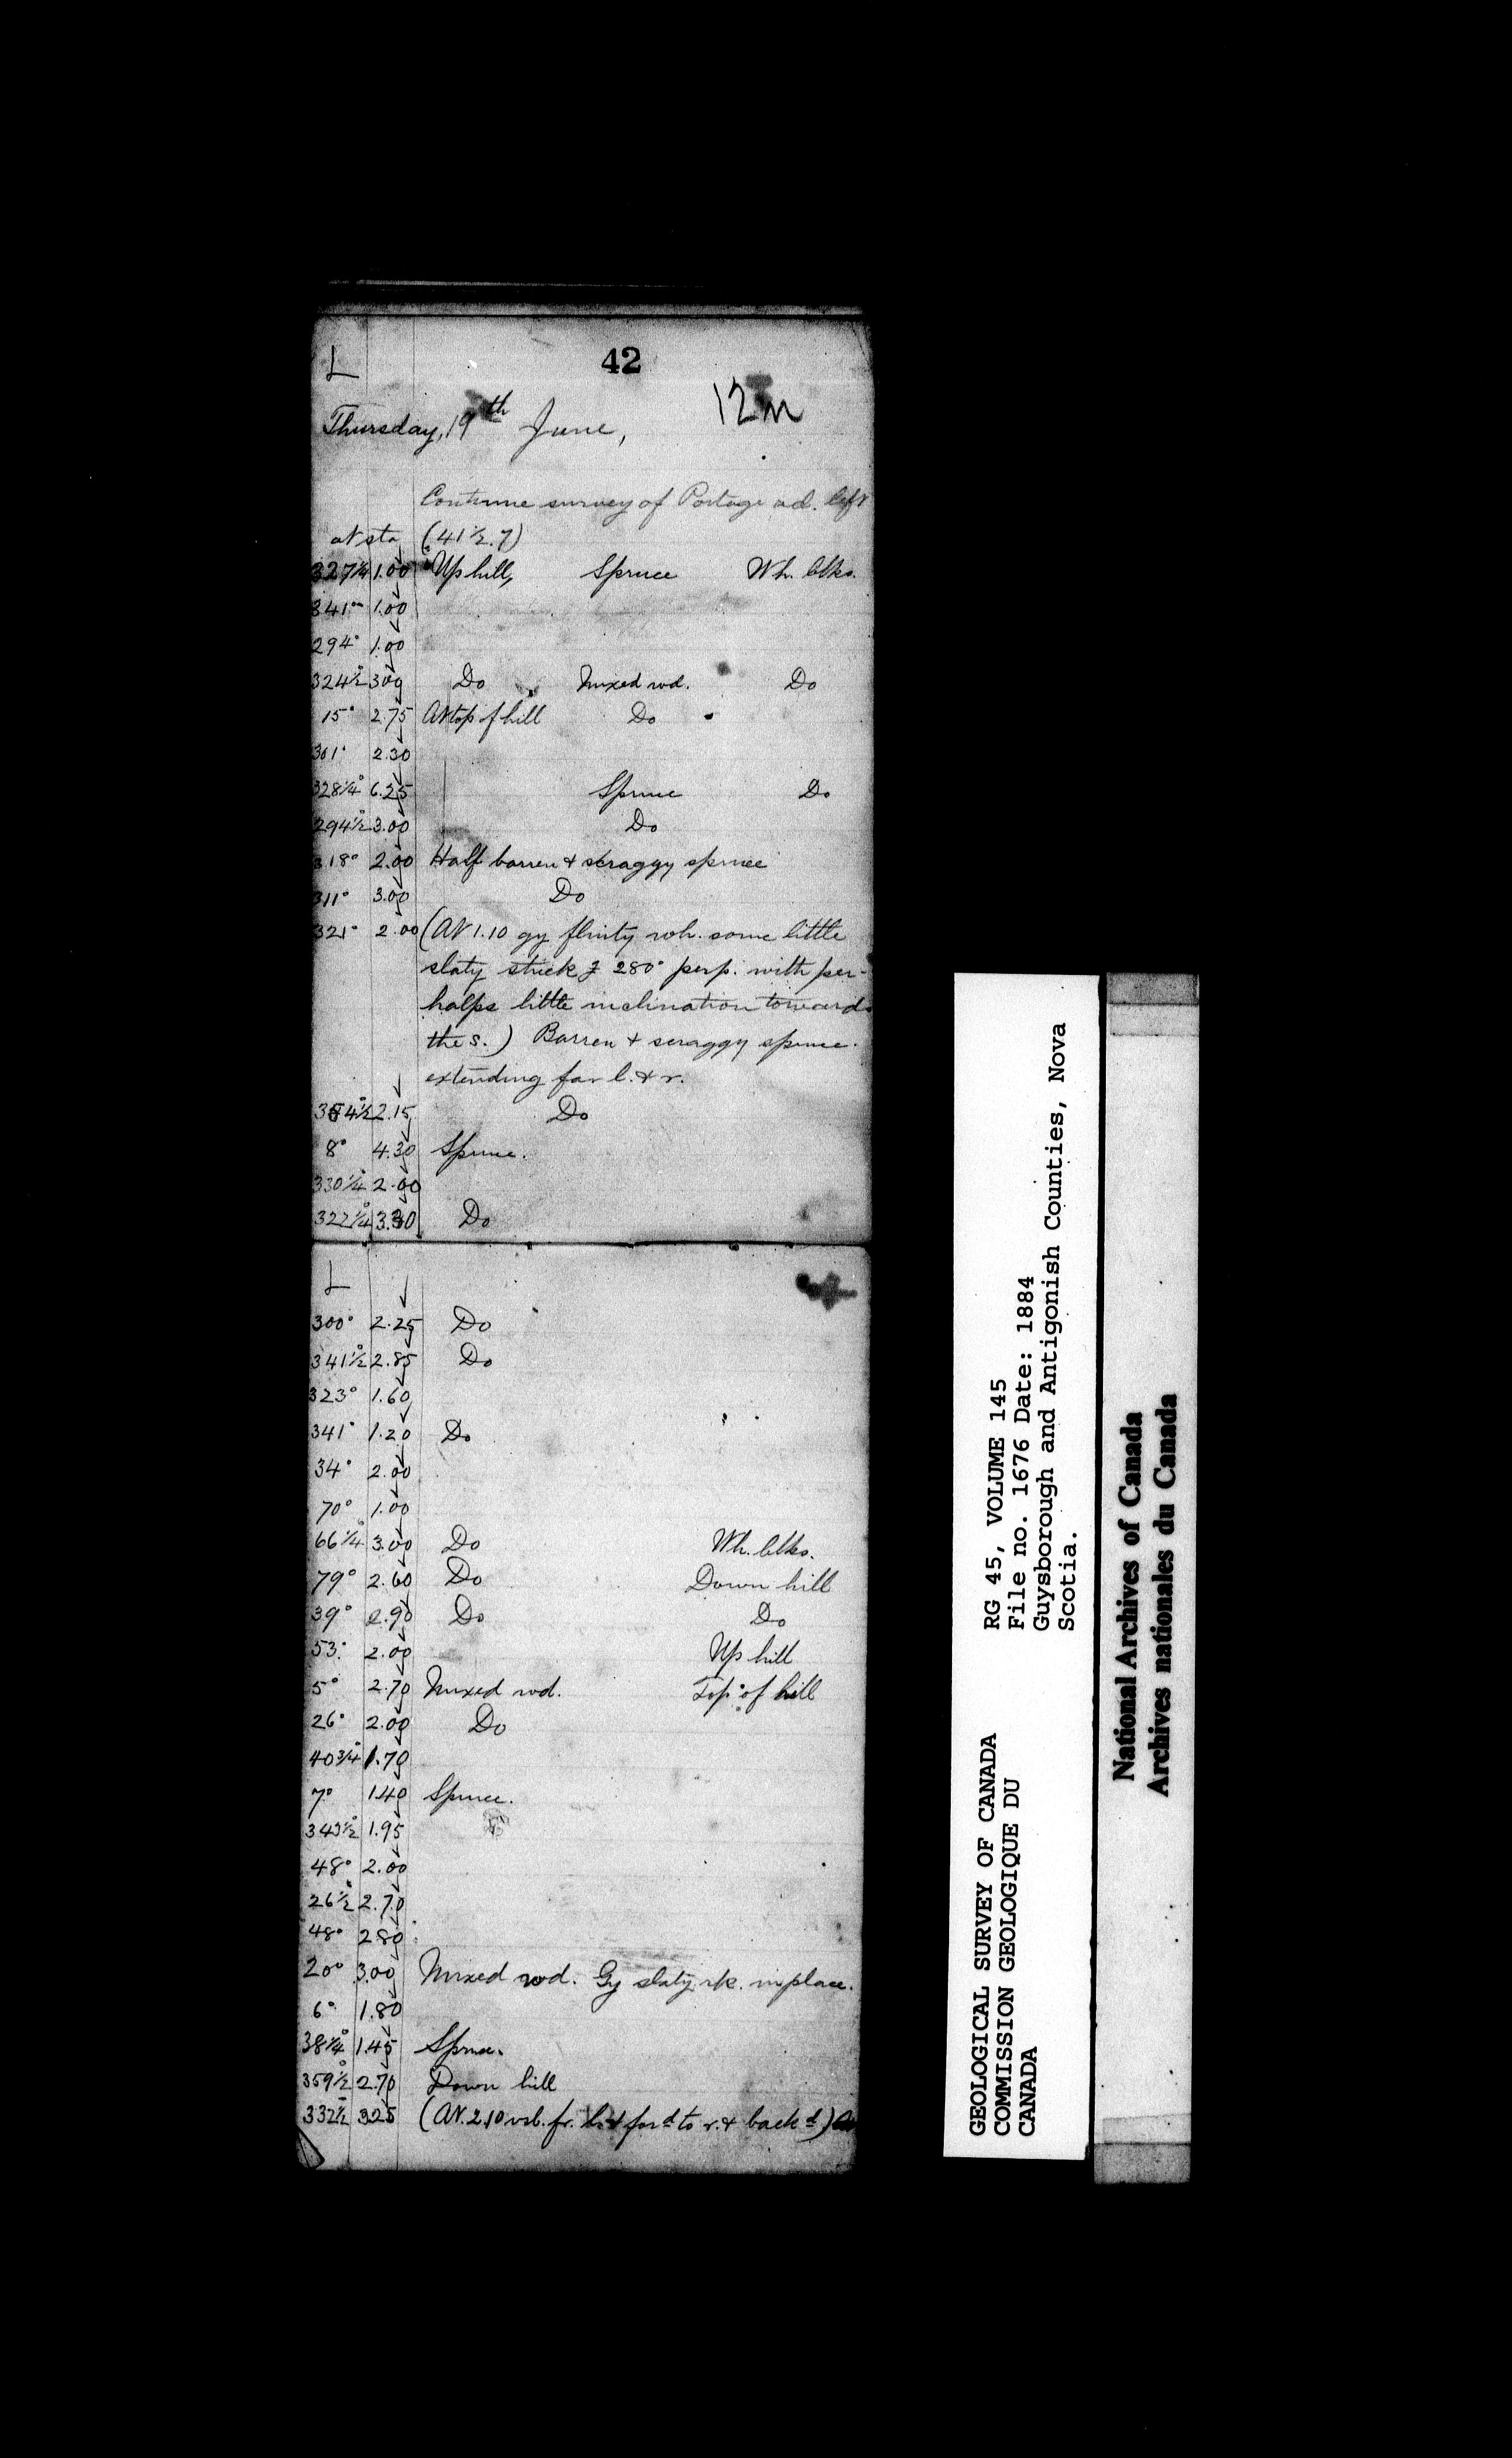 L
42
12m
Thursday, 19th June,
Continue survey of Portage rd. left
at sta (41½.7)
327¼ 1.00 Up hill, Spruce Wh. blks.
341° 1.00
294° 1.00
324½° 3.00 Do Mixed wd. Do
15° 2.75 At top of hill Do
301° 2.30
328¼° 6.25 Spruce Do
294½ 3.00 Do
318° 2.00 Half barren & scraggy spruce
311° 3.00 Do
321° 2.00 (At 1.10 gy flinty wh. some little
slaty strick 280° perp. with per-
halps little inclination towards
the s.) Barren & scraggy spruce.
extending far l. & r.
354½° 2.15 Do
8° 4.30 Spruce.
330¼° 2.00
322¼° 3.30 Do
L
300° 2.25 Do
341½° 2.85 Do
323° 1.60
341° 1.20 Do
34° 2.00
70° 1.00
66¼° 3.00 Do Wh. blks.
79° 2.60 Do Down hill
39° 2.90 Do Do
53° 2.00 Up hill
5° 2.70 Mixed wd. Top of hill
26° 2.00 Do
40¾° 1.70
7° 1.40 Spruce.
343½° 1.95
48° 2.00
26½° 2.70
48° 2.80
20° 3.00 Mixed wd. Gy slaty rk. in place.
6° 1.80
38¼° 1.45 Spruce.
359½° 2.70 Down hill
332½ 3.25 (At 2.10 vsl. fr. l. & ford to r. & backd)
GEOLOGICAL SURVEY OF CANADA
COMMISSION GEOLOGIQUE DU
CANADA
RG 45, VOLUME 145
File no. 1676 Date: 1884
Guysborough and Antigonish Counties, Nova
Scotia.
National Archives of Canada
Archives nationales du Canada